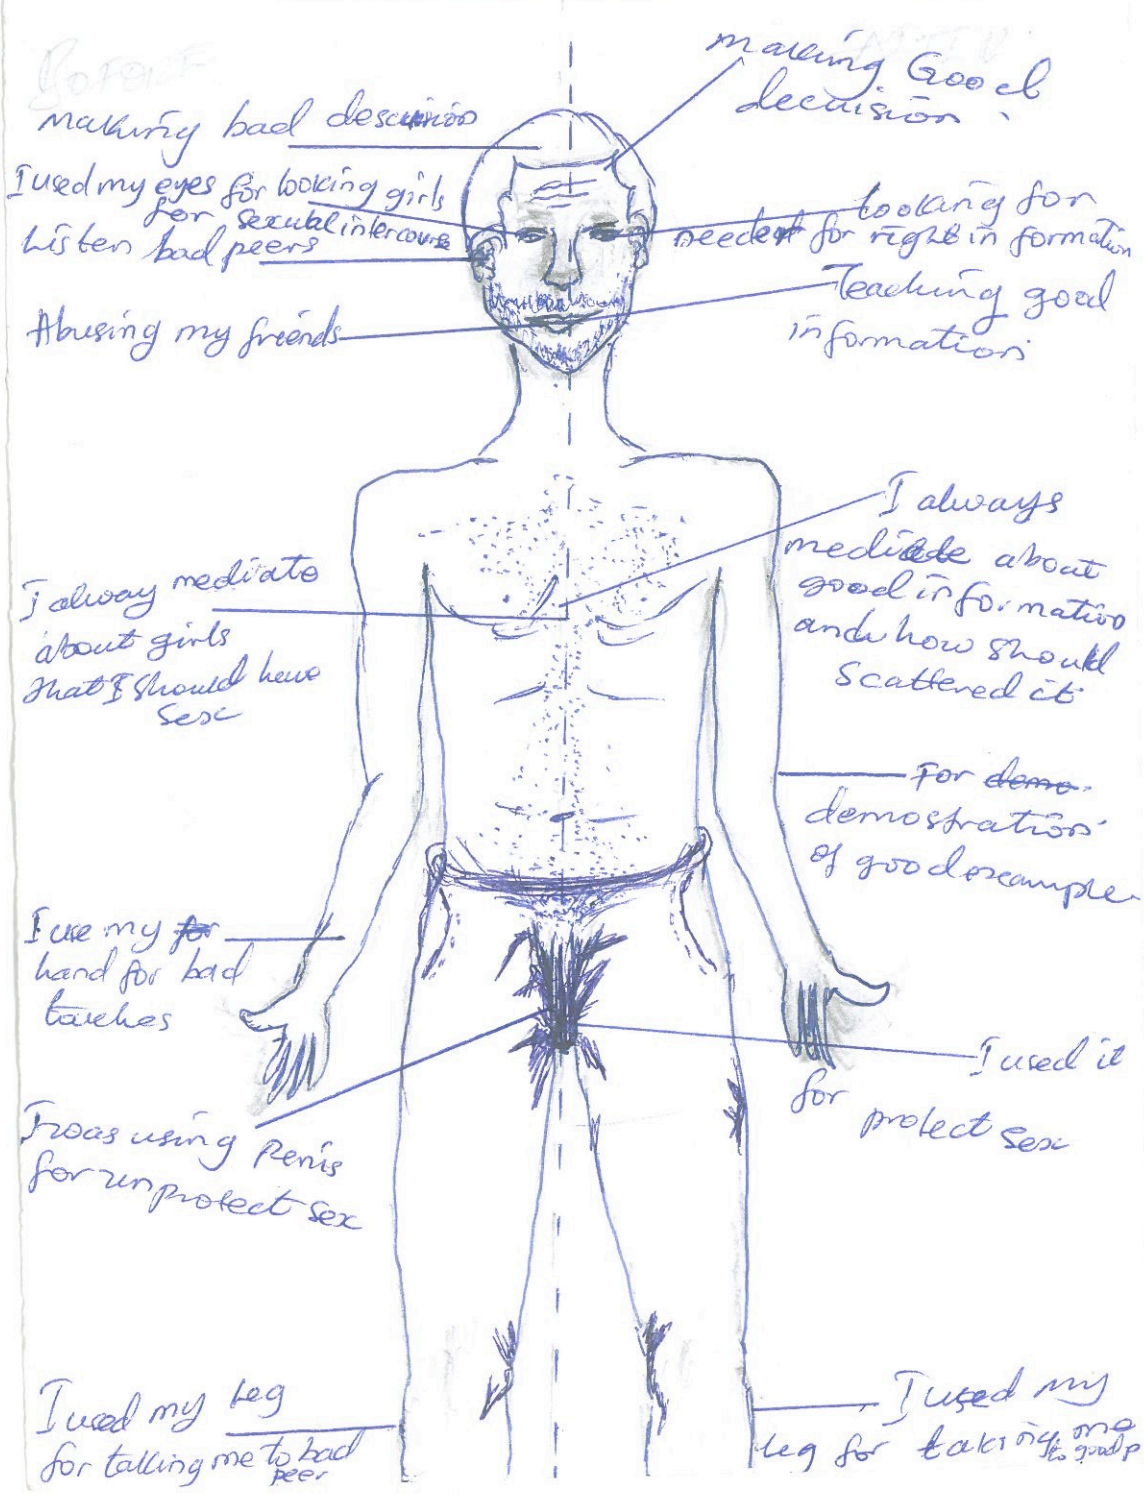 BEFORE
making bad
I used my eyes for looking girls
for sexual intercourse
Listen bad peers
Abusing my friends
I alway mediate
about girls
that I should have
sex
I use my for
hand for bad
touches
I was using Penis
for unprotect sex
I used my Leg
for talking me to bad
peer
making Good
decuision
Looking for
needed for right in formation
Teaching good
information
I always
about
good in formation
and how should
Scattered it
For demo
demostration
of good example
I used it
for
protect sex
I used my
leg for taking me
to good p